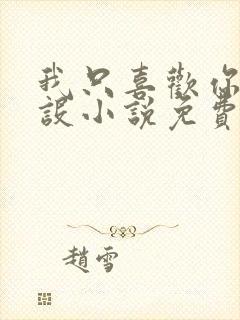 我只喜歡你
設小說免費
趙雪